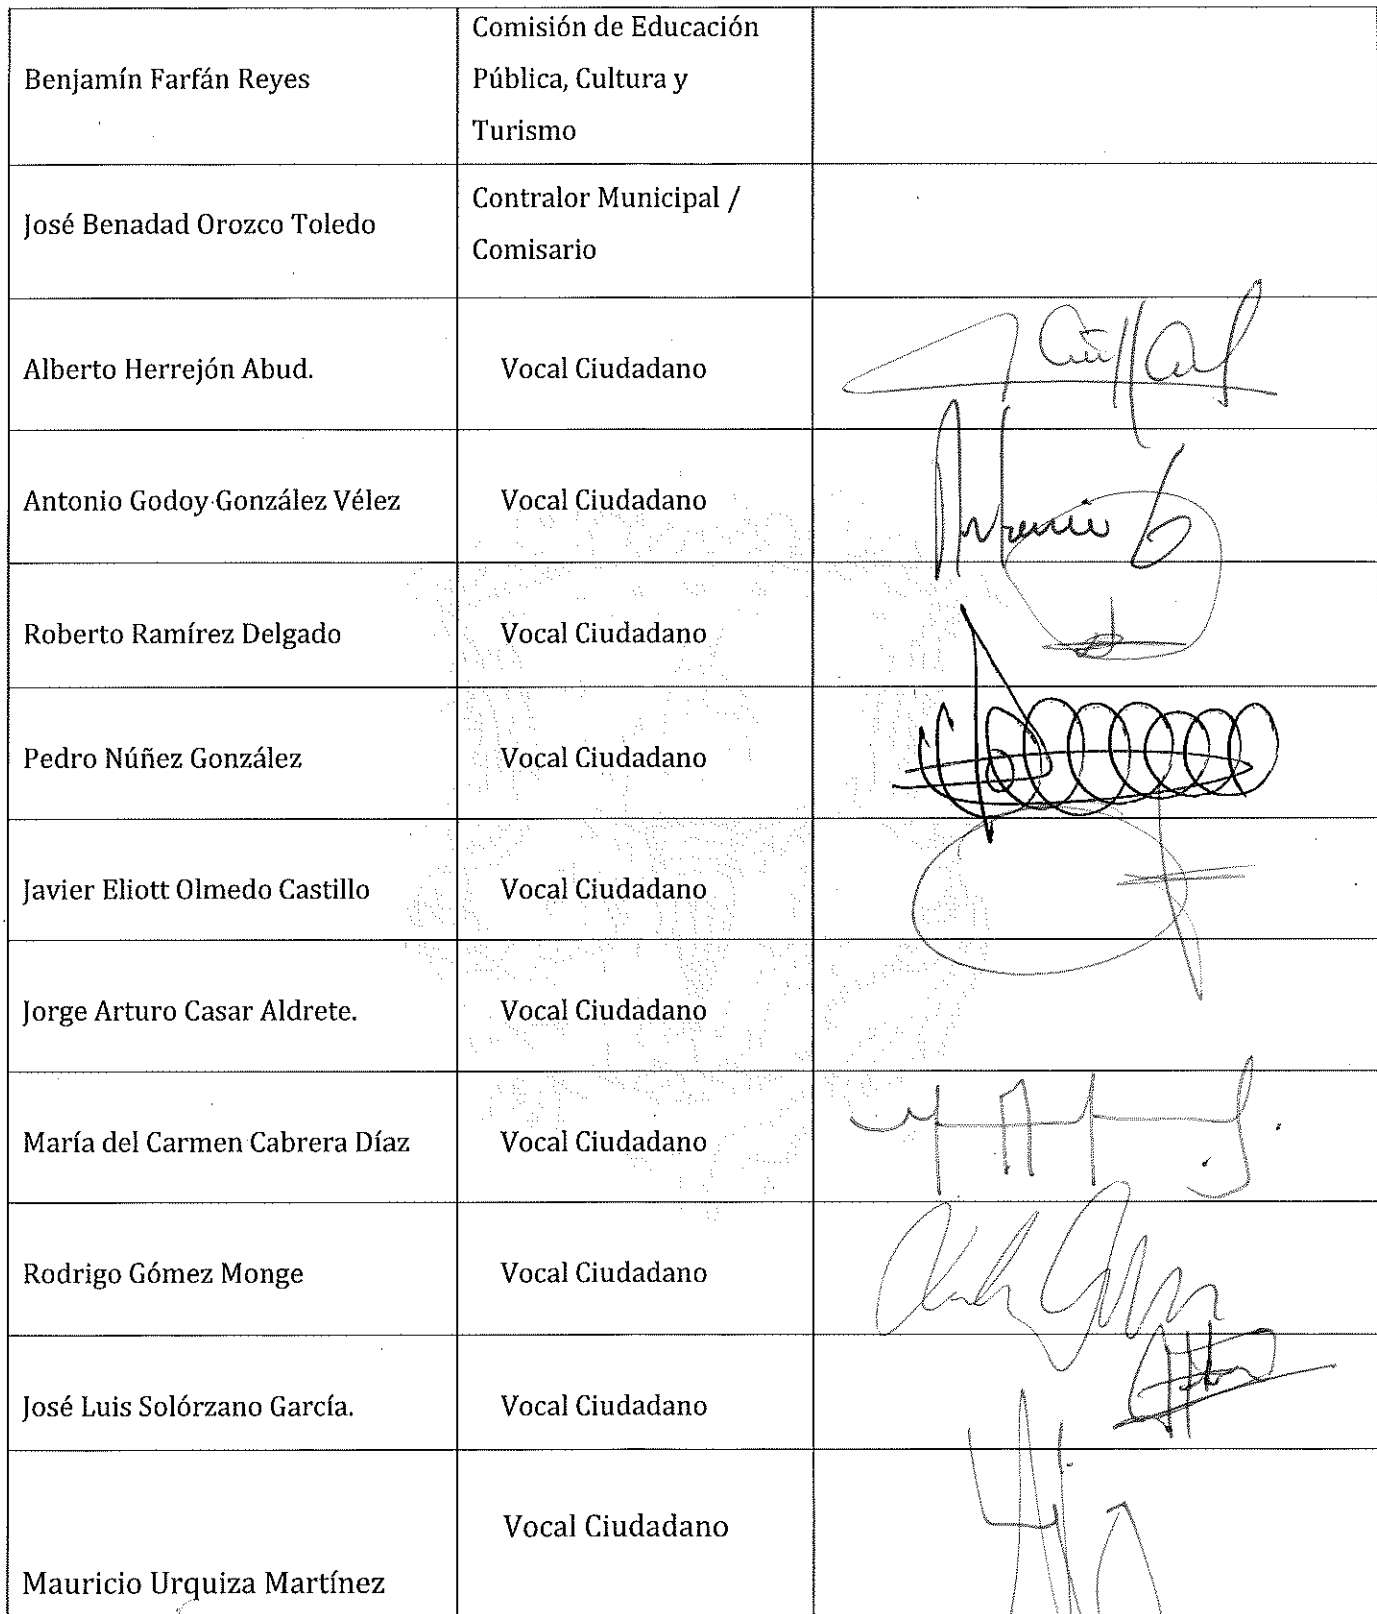 Comisión de Educación
Benjamín Farfán Reyes
Pública, Cultura y
Turismo
José Benadad Orozco Toledo
Contralor Municipal /
Comisario
Alberto Herrejón Abud. Vocal Ciudadano
Antonio Godoy González Vélez Vocal Ciudadano
Roberto Ramírez Delgado Vocal Ciudadano
Pedro Núñez González Vocal Ciudadano
Javier Eliott Olmedo Castillo Vocal Ciudadano
Jorge Arturo Casar Aldrete. Vocal Ciudadano
María del Carmen Cabrera Díaz Vocal Ciudadano
Rodrigo Gómez Monge Vocal Ciudadano
José Luis Solórzano García. Vocal Ciudadano
Vocal Ciudadano
Mauricio Urquiza Martínez